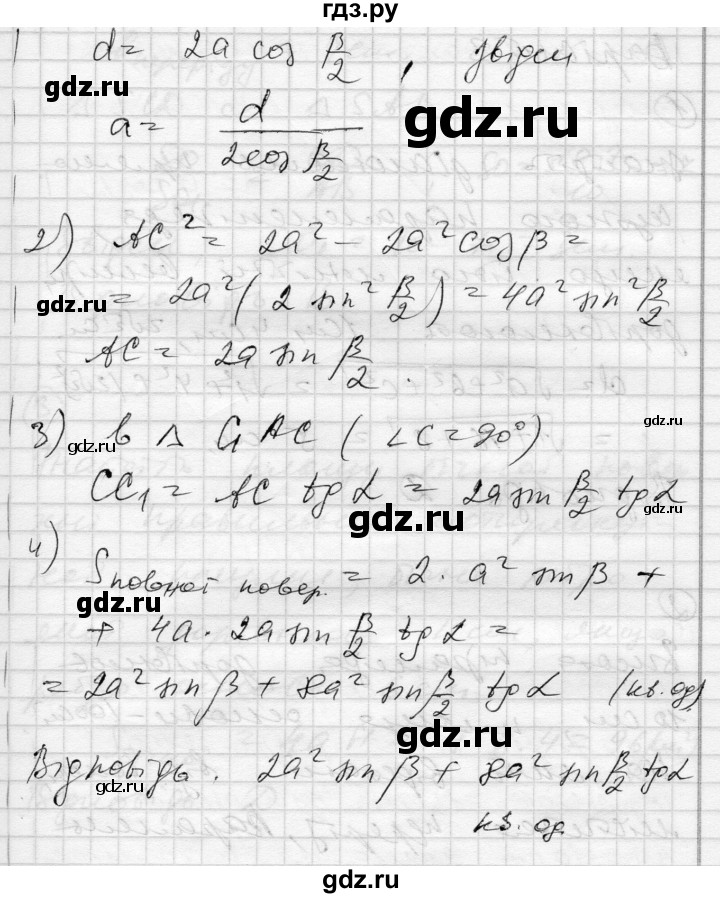 гдз.ру
d = 2a cos β/2, звідси
gdz.ru
gdz.ru
a = d / 2cos β/2
2) AC² = 2a² - 2a² cos β =
gdz.ru
gdz.ru
= 2a² (2 sin² β/2) = 4a² sin² β/2
AC = 2a sin β/2.
3) в Δ C₁AC (∠C = 90°)
gdz.ru
gdz.ru
CC₁ = AC tg α = 2a sin β/2 tg α
gdz.ru
gdz.ru
4) Sповної повер. = 2 · a² sin β +
gdz.ru
+ 4a · 2a sin β/2 tg α =
gdz.ru
= 2a² sin β + 8a² sin β/2 tg α (кв. од)
gdz.ru
Відповідь. 2a² sin β + 8a² sin β/2 tg α
gdz.ru
gdz.ru
кв. од
gdz.ru
gdz.ru